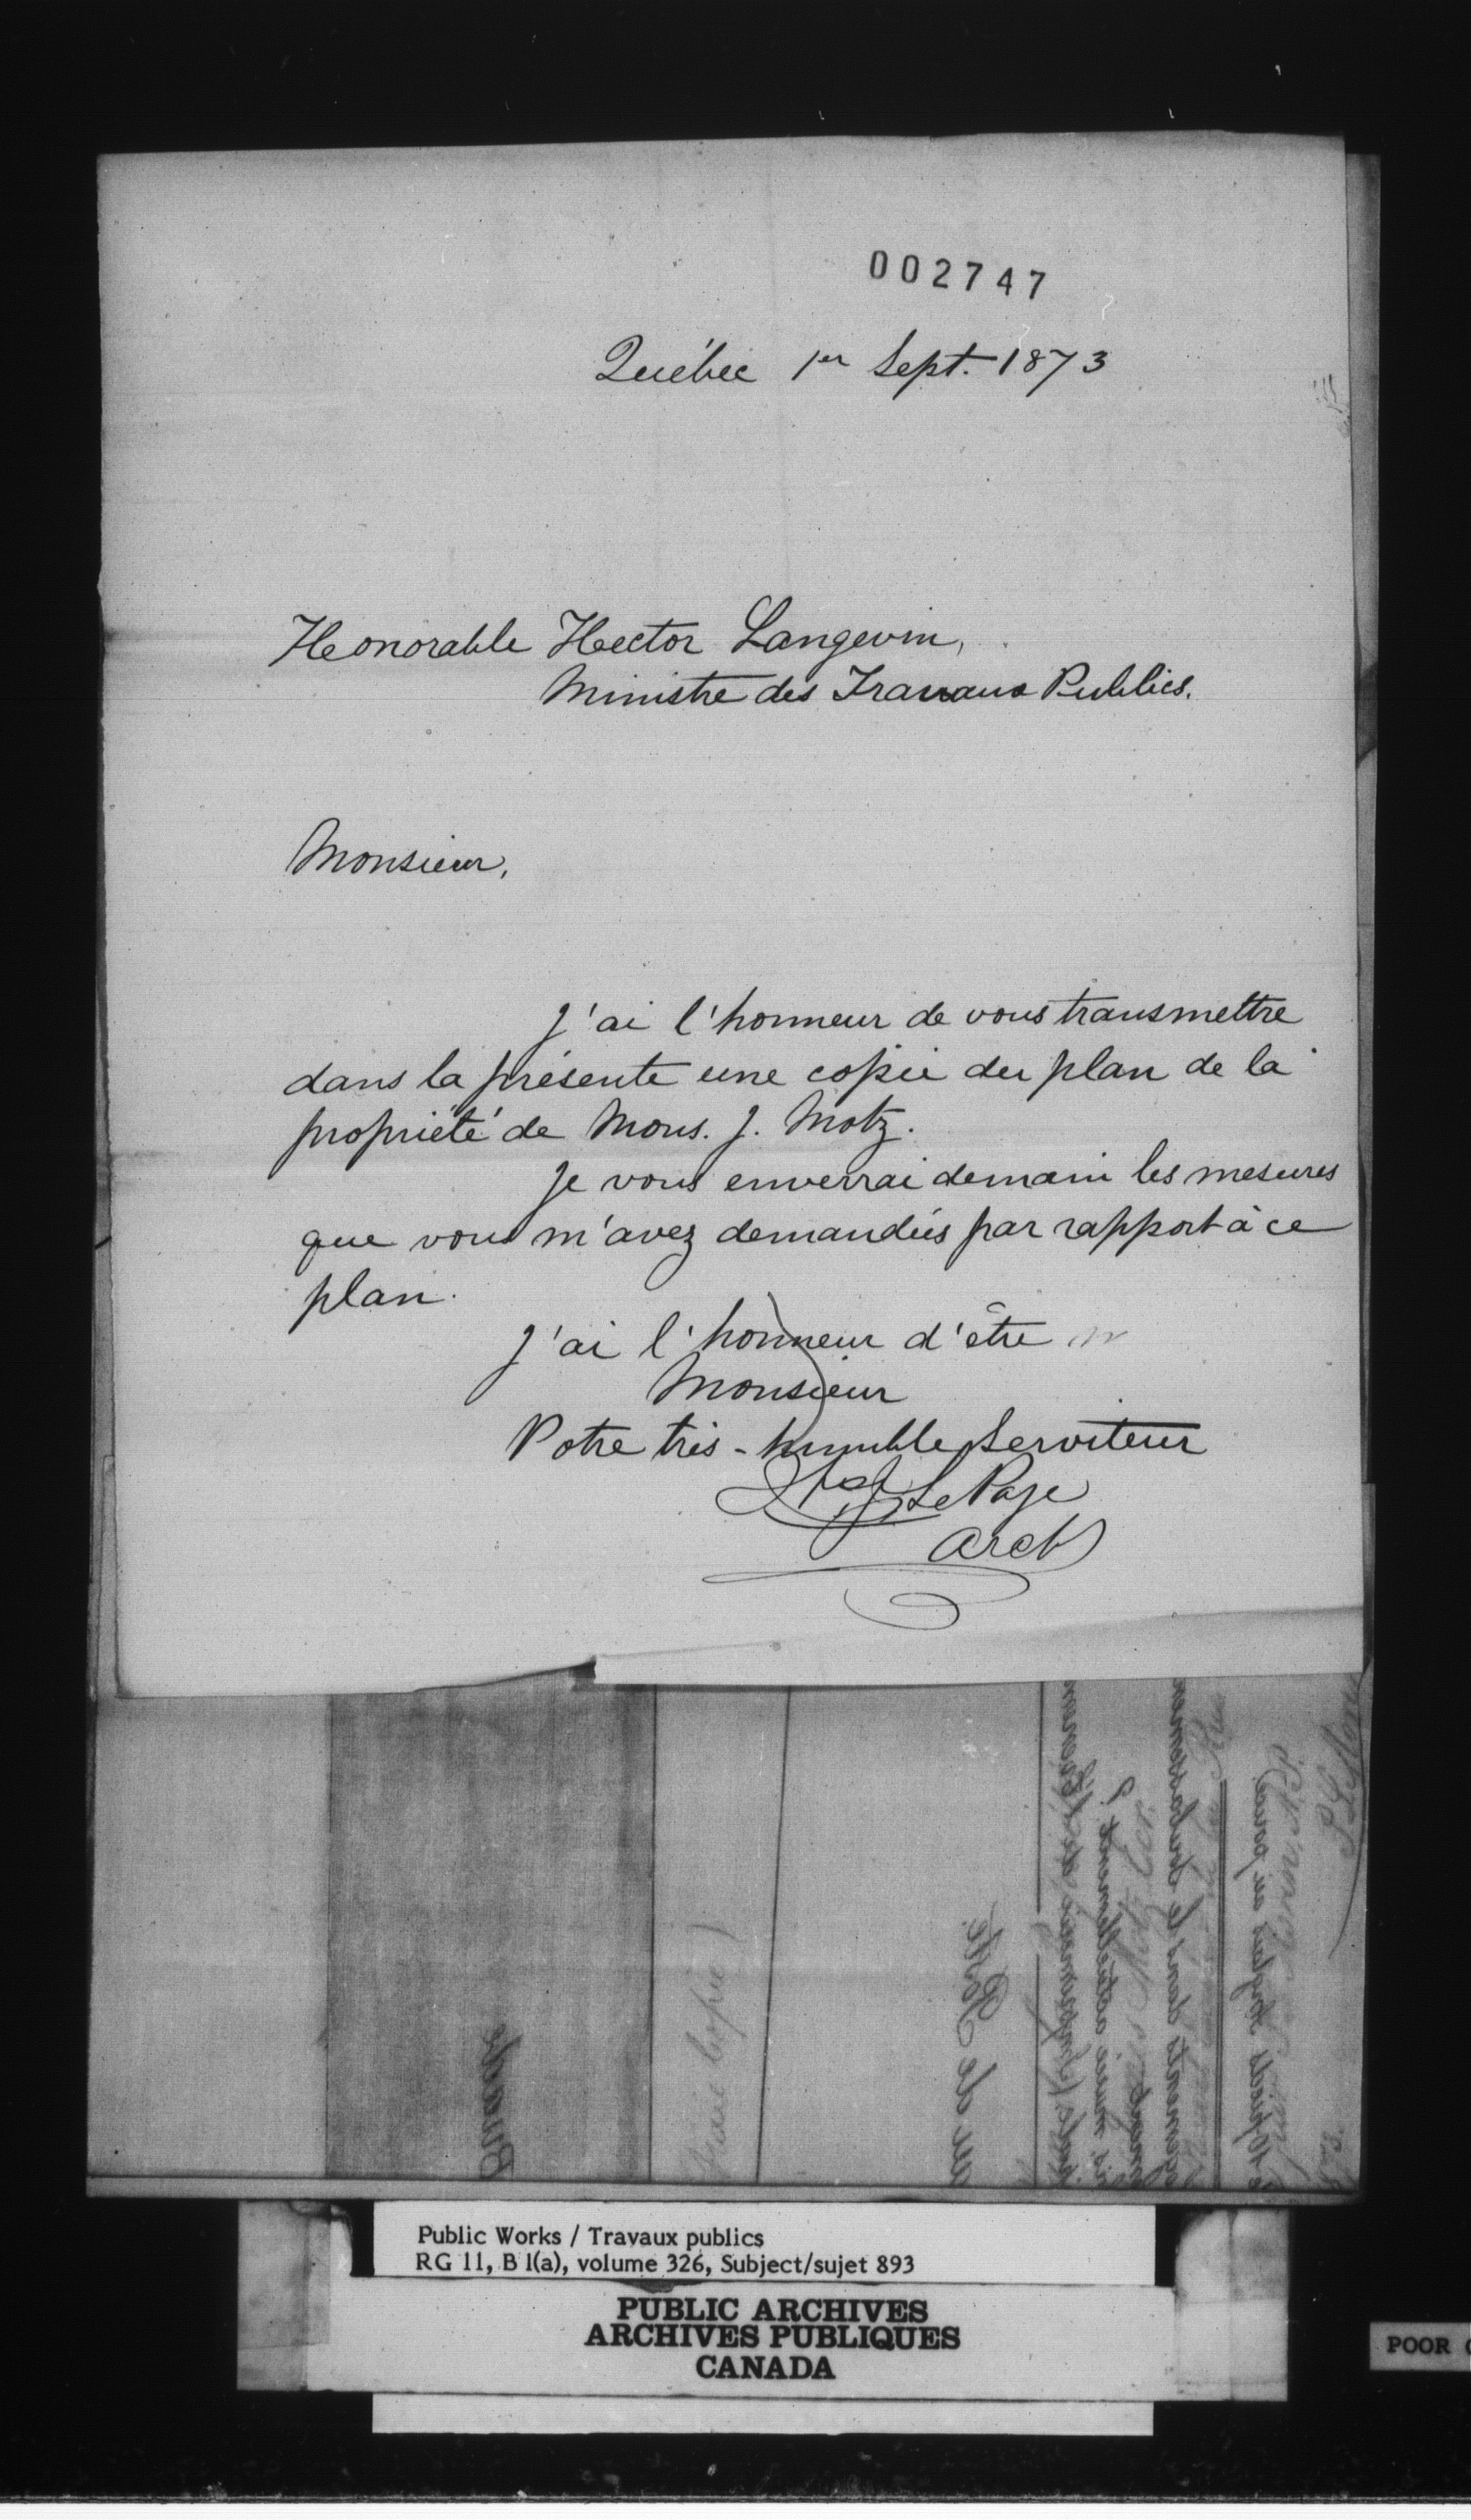 002747
Québec 1er Sept. 1873
Honorable Hector Langevin,
Ministre des Travaux Publics.
Monsieur,
J'ai l'honneur de vous transmettre
dans la présente une copie du plan de la
propriété de Mons. J. Motz.
Je vous enverrai demain les mesures
que vous m'avez demandées par rapport à ce
plan.
J'ai l'honneur d'être
Monsieur
Votre très-humble Serviteur
LePage
Arct
Buade
rue de
Public Works / Travaux publics
RG 11, B 1(a), volume 326, Subject/sujet 893
PUBLIC ARCHIVES
ARCHIVES PUBLIQUES
CANADA
POOR